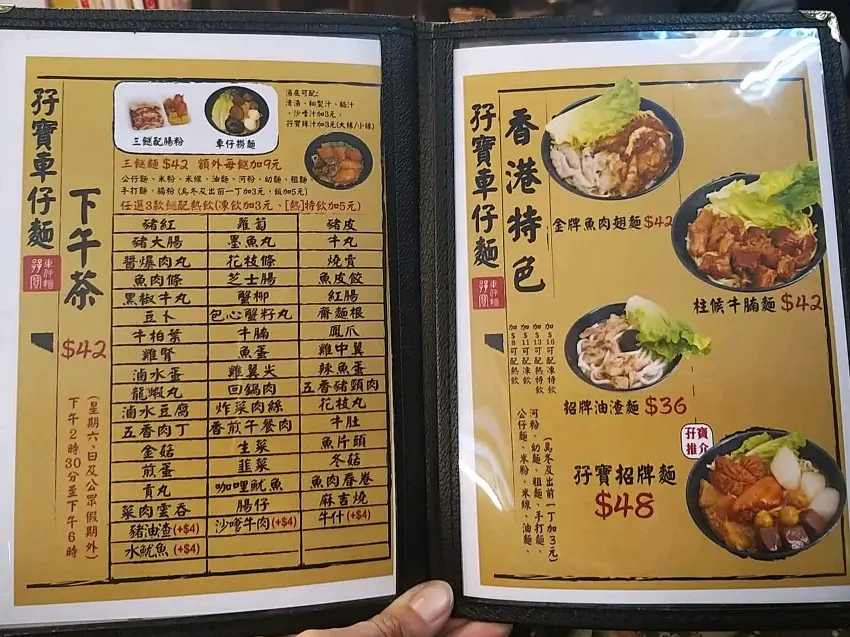 孖寶車仔麵
下午茶
$42
(星期六、日及公眾假期外)
下午2時30分至下午6時
車仔麵
孖寶
三餸配腸粉
車仔撈麵
湯底可配:
清湯、秘製汁、腩汁
、沙嗲汁加3元、
孖寶辣汁加3元(大辣/小辣)
三餸麵 $42 額外每餸加9元
公仔麵、米粉、米線、油麵、河粉、幼麵、粗麵、
手打麵、腸粉 (烏冬及出前一丁加3元、飯加5元)
任選3款餸配熱飲(凍飲加3元、[熱]特飲加5元)
豬紅 蘿蔔 豬皮
豬大腸 墨魚丸 牛丸
醬爆肉丸 花枝條 燒賣
魚肉條 芝士腸 魚皮餃
黑椒牛丸 蟹柳 紅腸
豆卜 包心蟹籽丸 齋麵根
牛柏葉 牛腩 鳳爪
雞腎 魚蛋 雞中翼
滷水蛋 雞翼尖 辣魚蛋
龍蝦丸 回鍋肉 五香豬頸肉
滷水豆腐 炸菜肉絲 花枝丸
五香肉丁 香煎午餐肉 牛肚
金菇 生菜 魚片頭
煎蛋 韭菜 冬菇
貢丸 咖哩魷魚 魚肉春卷
菜肉雲吞 腸仔 麻吉燒
豬油渣(+$4) 沙嗲牛肉(+$4) 牛什(+$4)
水魷魚(+$4)
孖寶車仔麵
香港特色
車仔麵
孖寶
金牌魚肉翅麵 $42
柱侯牛腩麵 $42
招牌油渣麵 $36
孖寶推介
孖寶招牌麵
$48
加$16可配凍特飲
加$13可配熱特飲
加$11可配凍飲
加$8可配熱飲
(烏冬及出前一丁加3元)
河粉、幼麵、粗麵、手打麵、
公仔麵、米粉、米線、油麵、